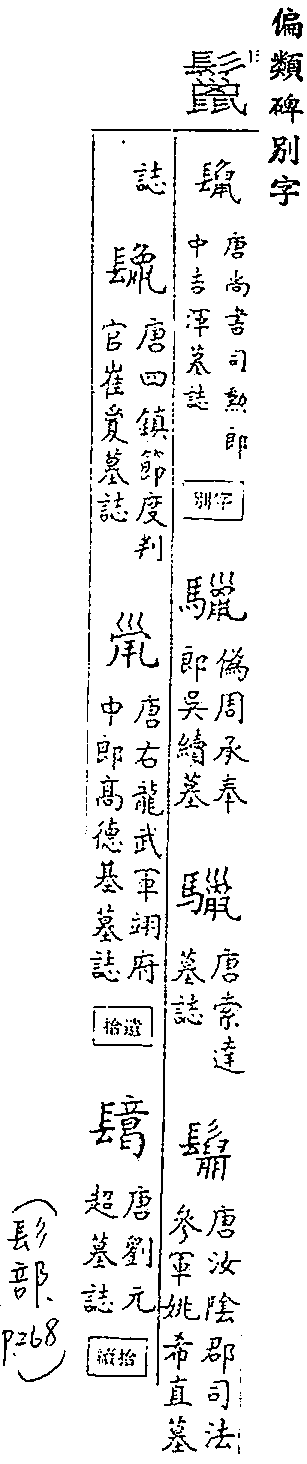 偏類碑別字
鬣
唐尚書司勲郎
中吉渾墓誌
字別
偽周承奉
郎吳續墓
唐索達
墓誌
唐汝陰郡司法
參軍姚希直墓
誌
唐四鎮節度判
官崔夐墓誌
唐右龍武軍翊府
中郎高德基墓誌
拾遺
唐劉元
超墓誌
拾續
(髟部 P.268)